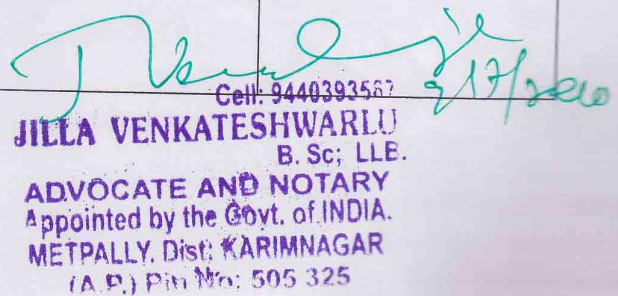 Cell: 9440393567
JILLA VENKATESHWARLU
B. Sc; LLB.
ADVOCATE AND NOTARY
Appointed by the Govt. of INDIA.
METPALLY. Dist: KARIMNAGAR
(A.P.) Pin No: 505 325